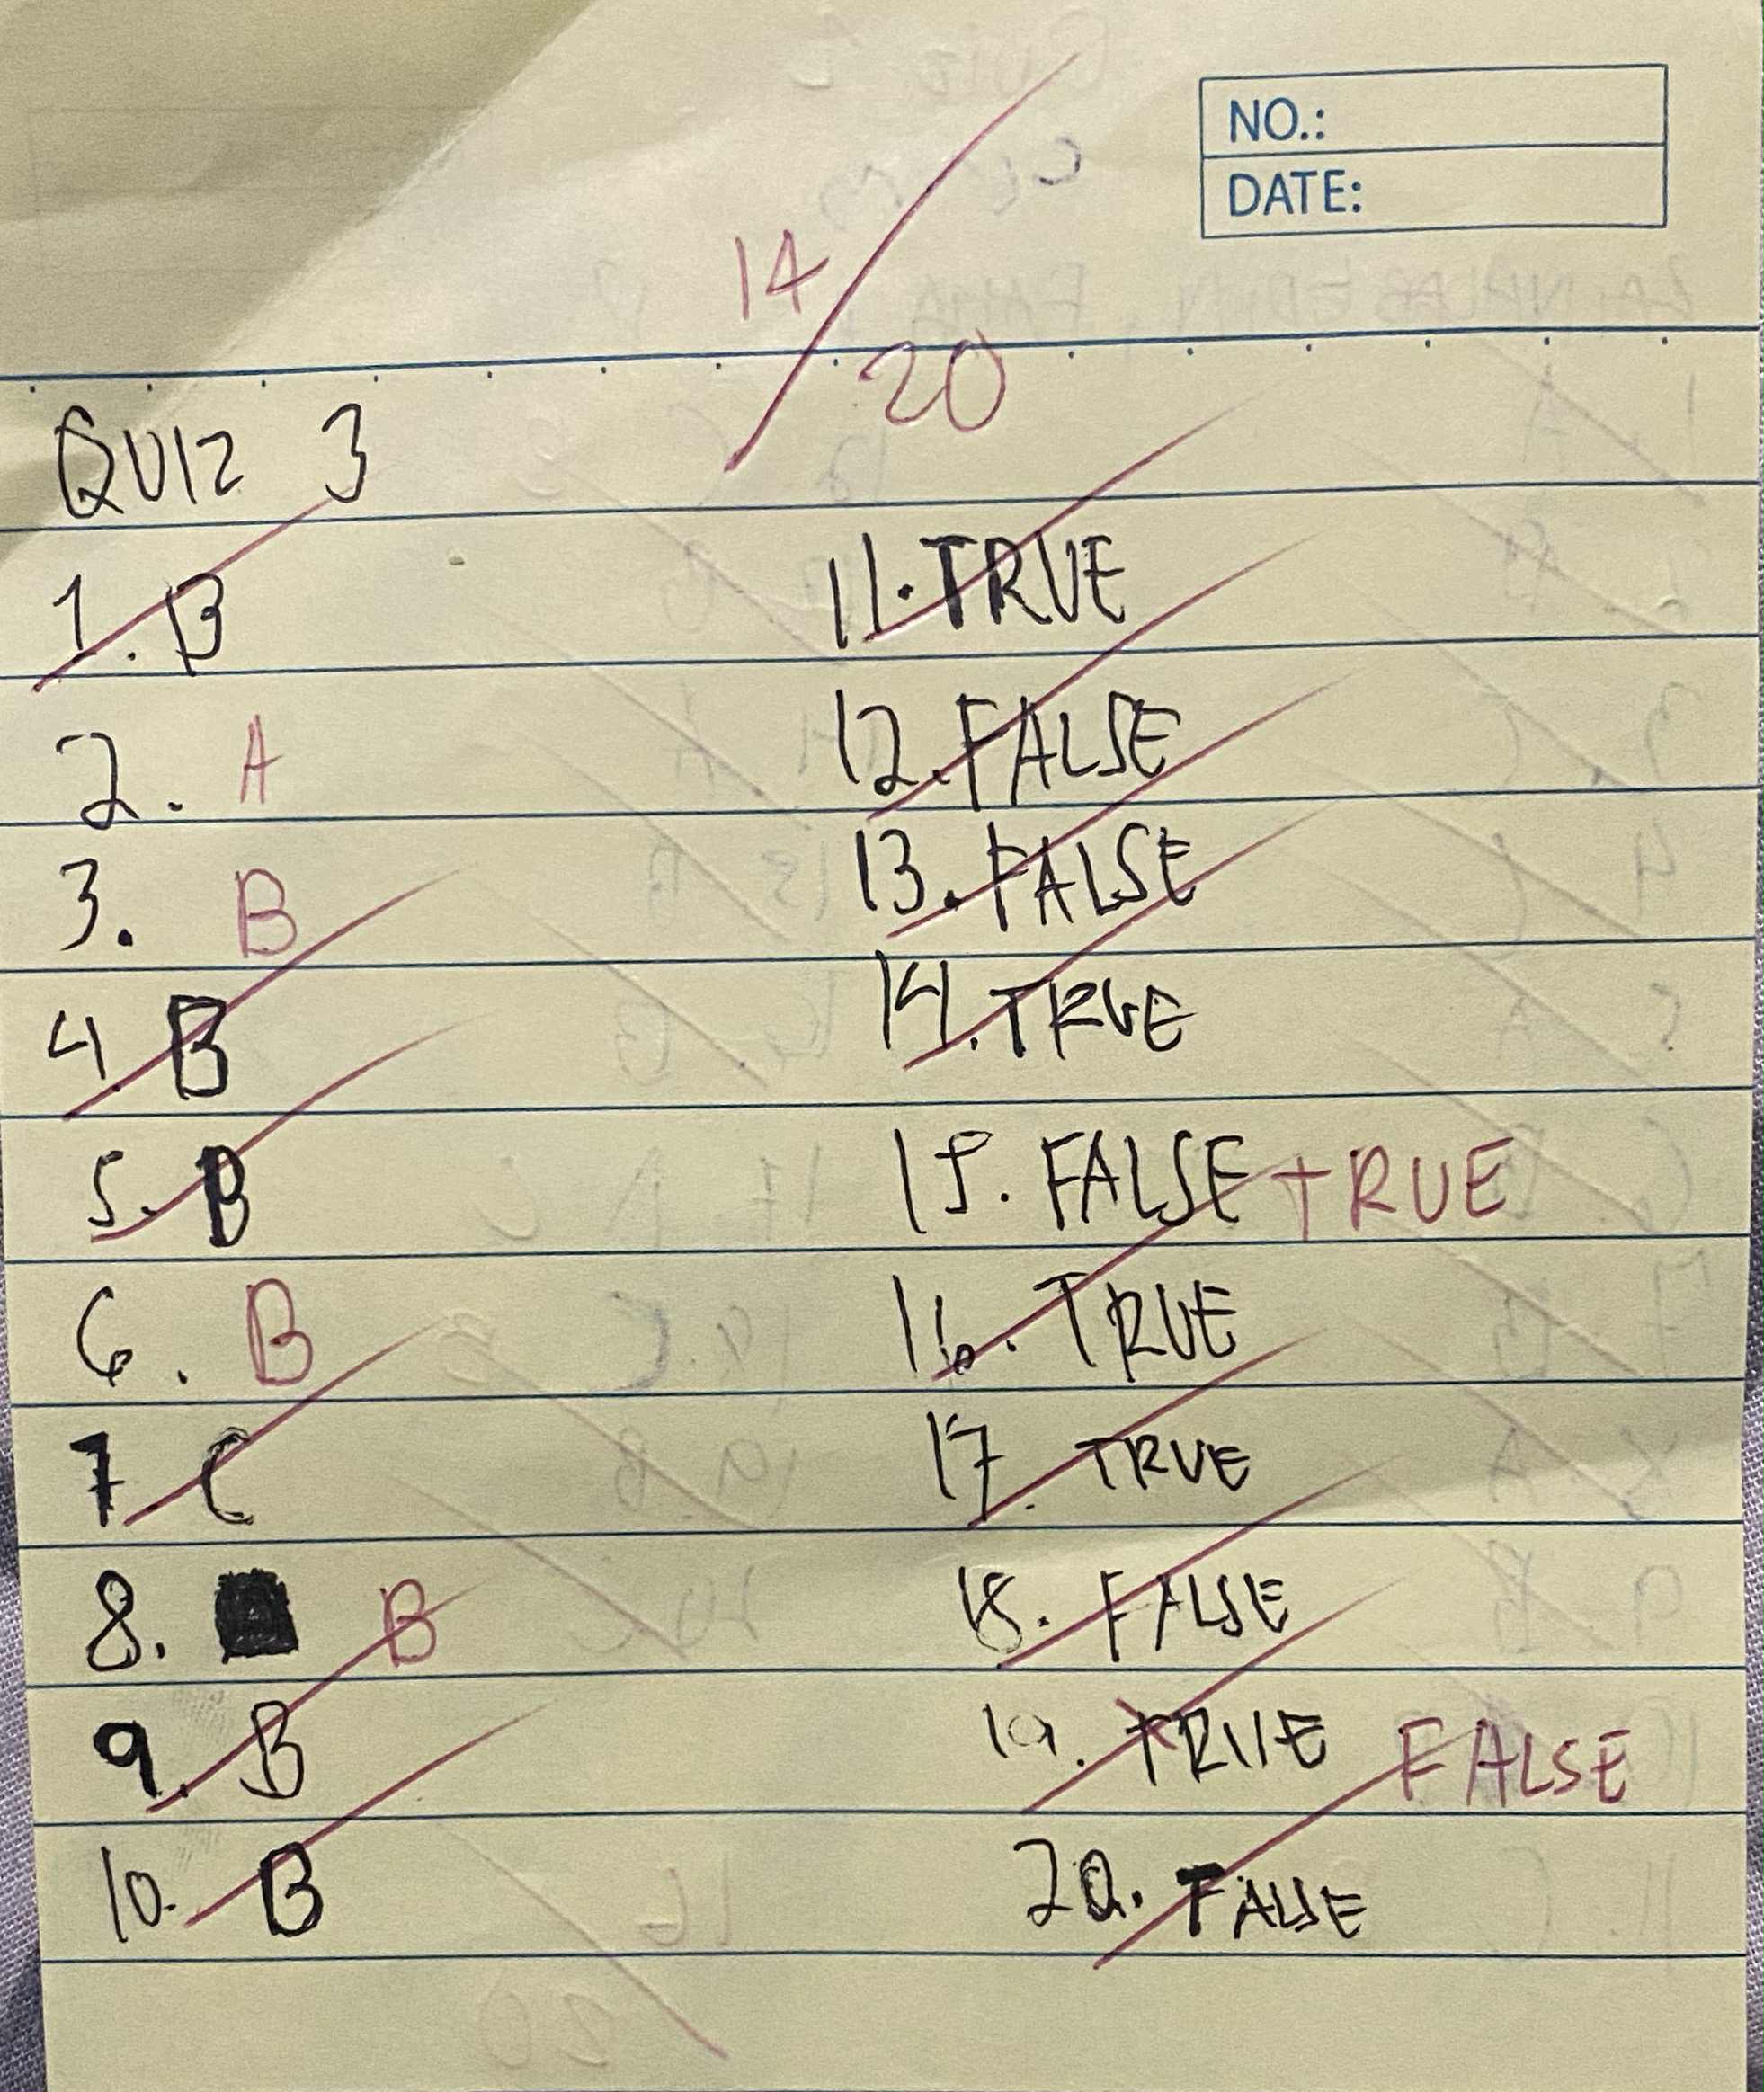 NO.:
DATE:
14/20
QUIZ 3
1. B
2. A
3. B
4. B
5. B
6. B
7. C
8. B
9. B
10. B
11. TRUE
12. FALSE
13. FALSE
14. TRUE
15. FALSE TRUE
16. TRUE
17. TRUE
18. FALSE
19. TRUE FALSE
20. FALSE